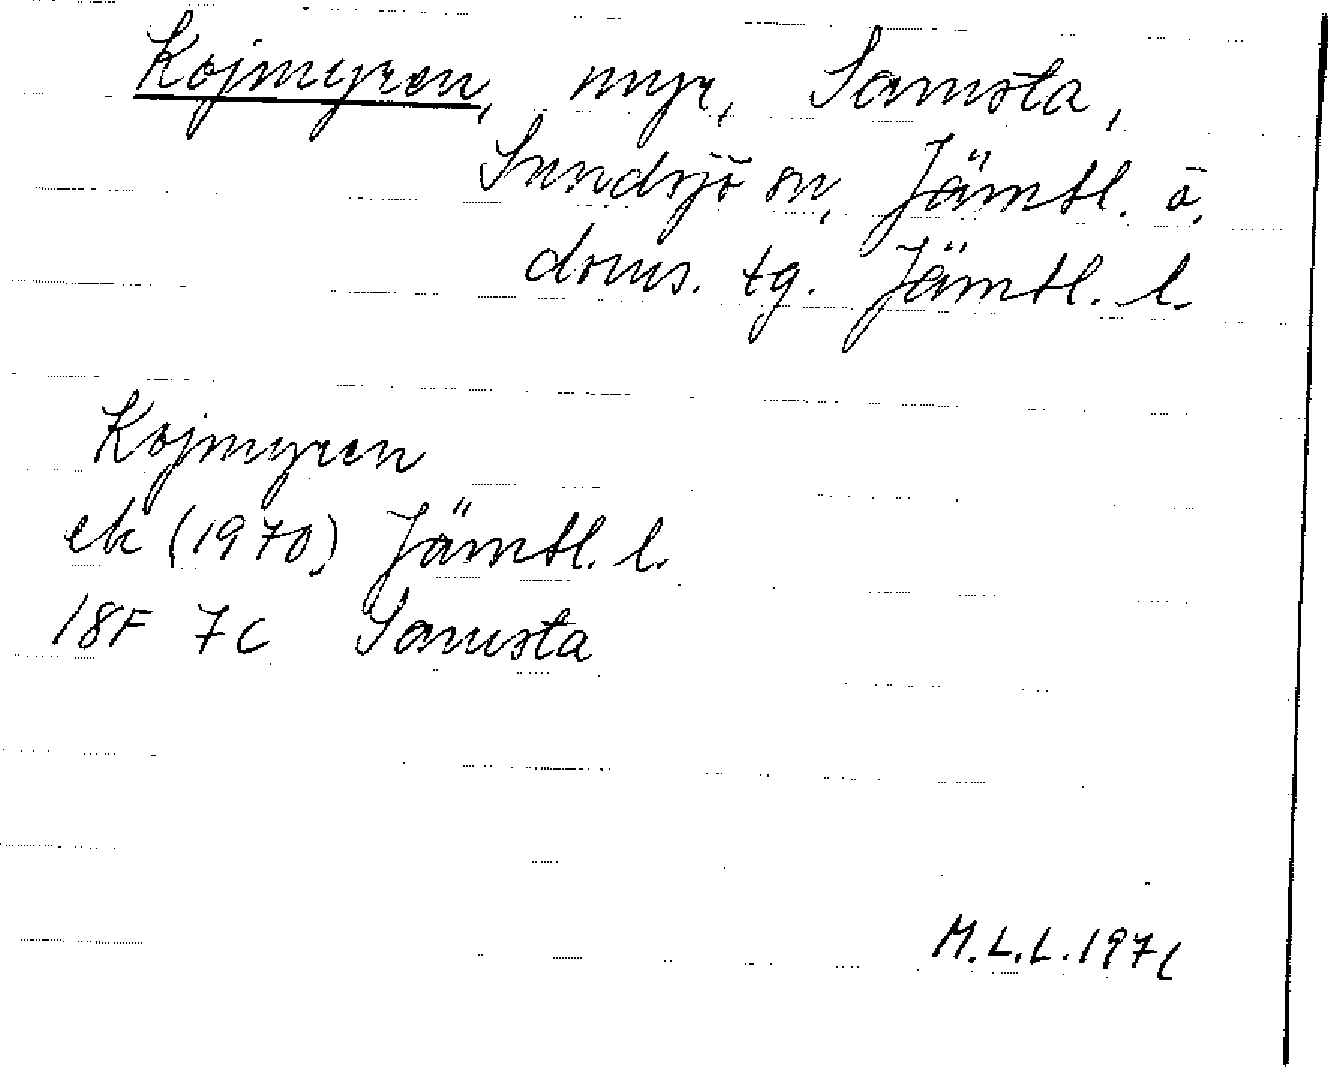 Kojmyren, myr, Samsta,
Sundsjö sn, Jämtl. ö.
doms. tg. Jämtl. l.
Kojmyren
ek (1970) Jämtl. l.
18F 7c Samsta
M.L.L.1971